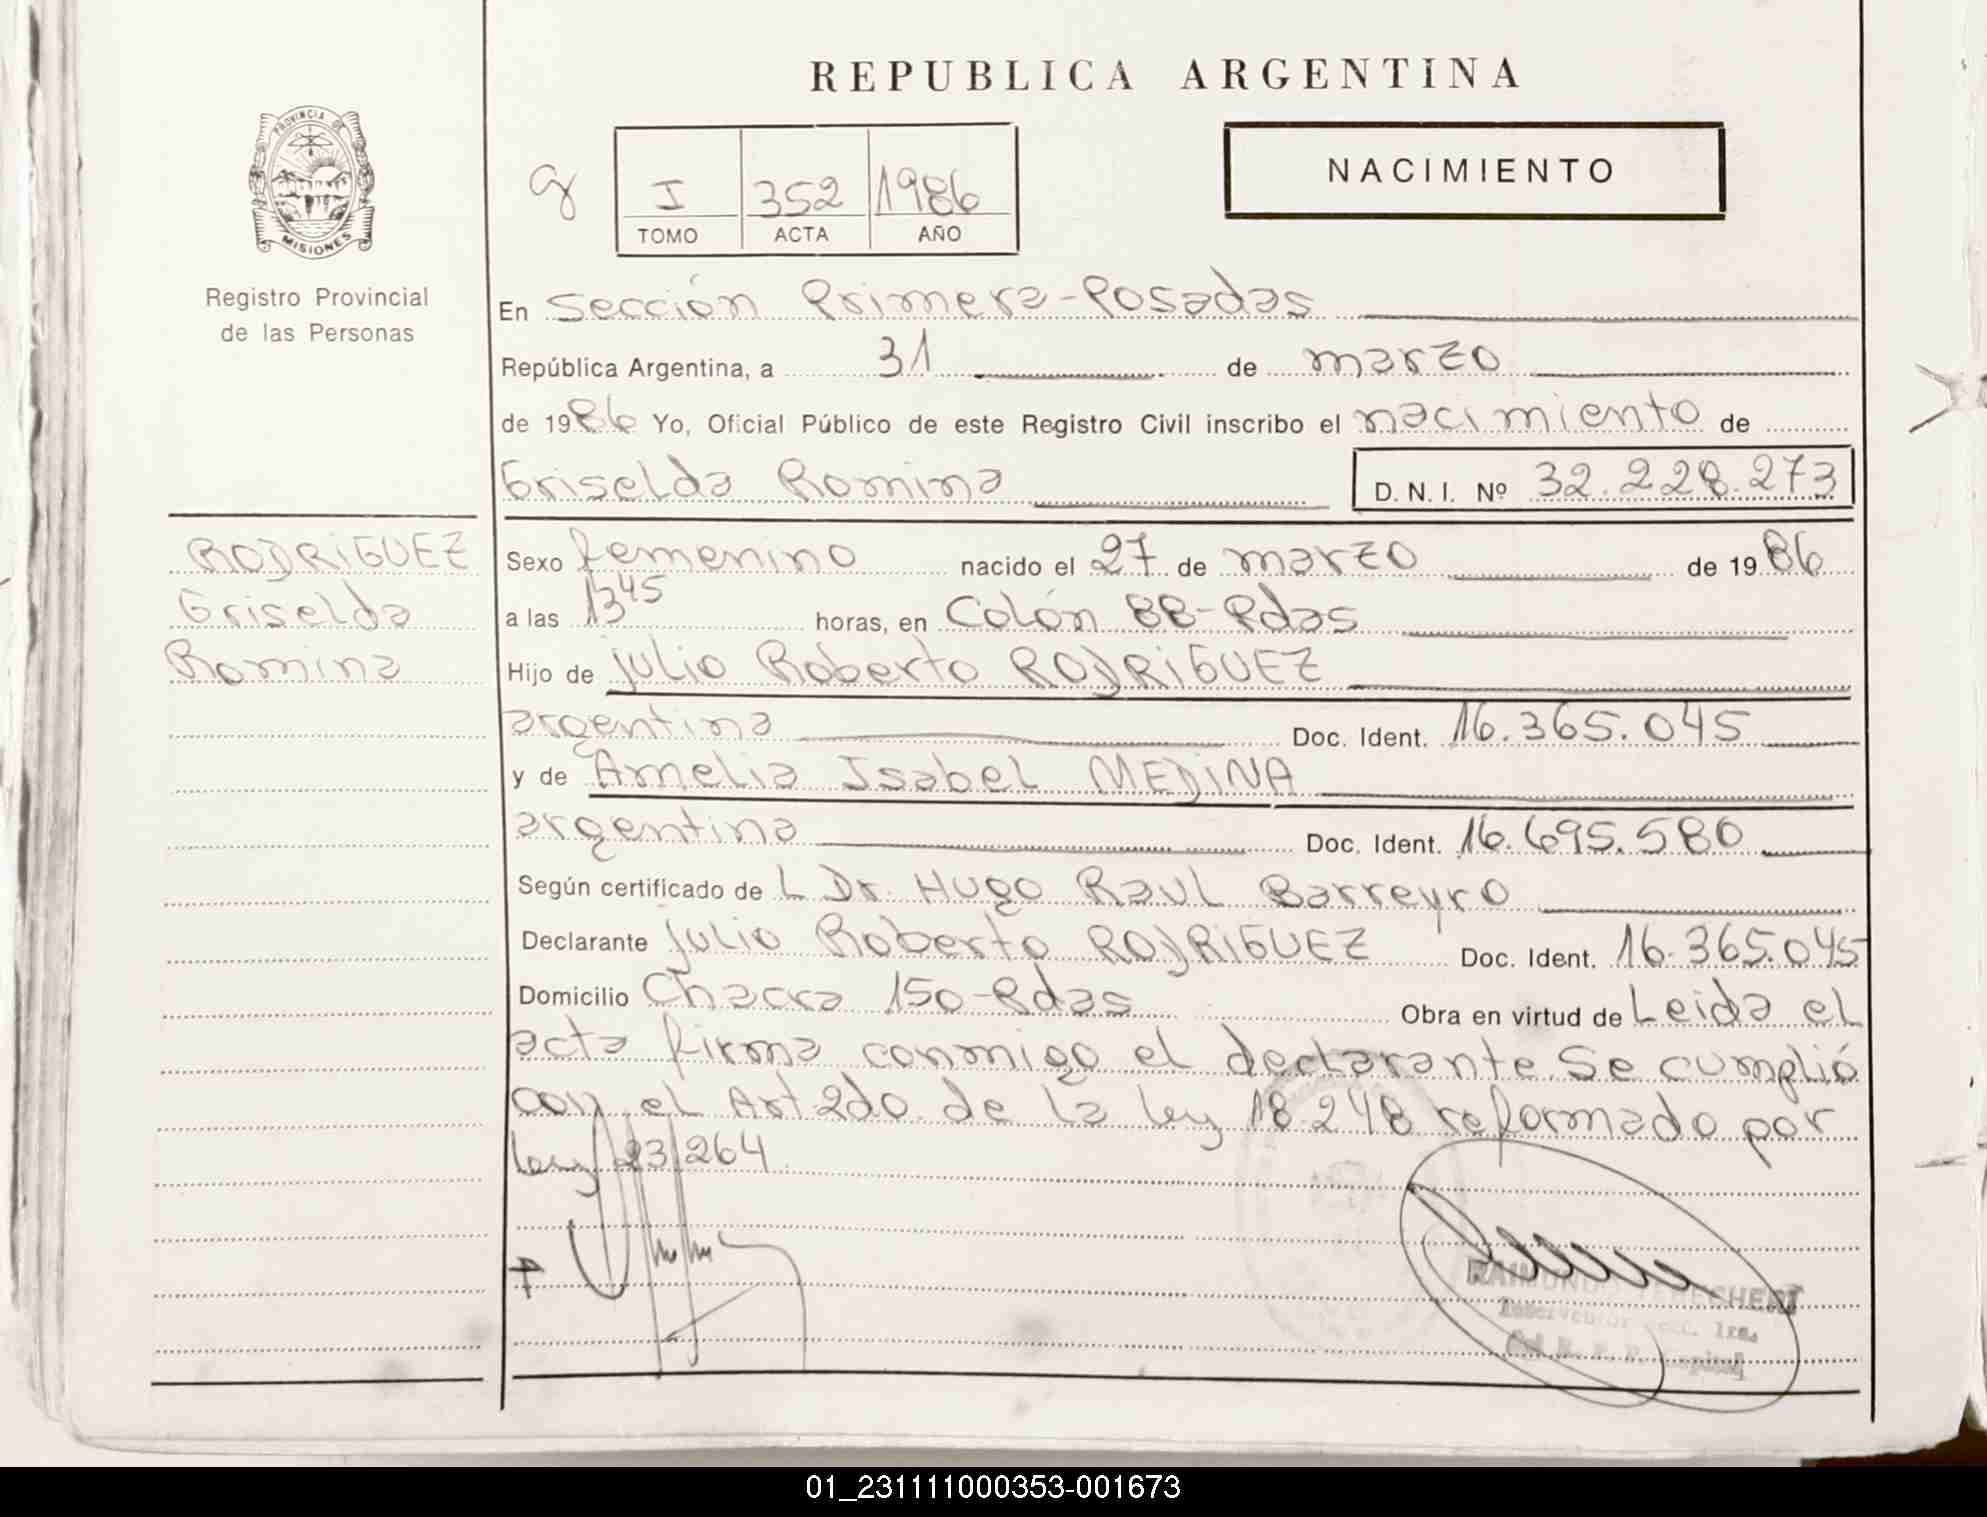 REPUBLICA ARGENTINA
PROVINCIA DE
MISIONES
Registro Provincial
de las Personas
I 352 1986
TOMO ACTA AÑO
NACIMIENTO
En Sección Primera-Posadas
República Argentina, a 31 de marzo
de 1986 Yo, Oficial Público de este Registro Civil inscribo el nacimiento de
Griselda Romina D.N.I. Nº 32.228.273
RODRIGUEZ
Griselda
Romina
Sexo femenino nacido el 27 de marzo de 1986
a las 13 45 horas, en Colón 88-Pdas
Hijo de julio Roberto RODRIGUEZ
argentina Doc. Ident. 16.365.045
y de Amelia Isabel MEDINA
argentina Doc. Ident. 16.695.580
Según certificado de L Dr. Hugo Raul Barreyro
Declarante julio Roberto RODRIGUEZ Doc. Ident. 16.365.045
Domicilio Chacra 150-Pdas Obra en virtud de Leida el
acta firma conmigo el declarante. Se cumplió
con el Art 2do de la ley 18.248 reformado por
ley 23/264
RAIMUNDO
01_231111000353-001673